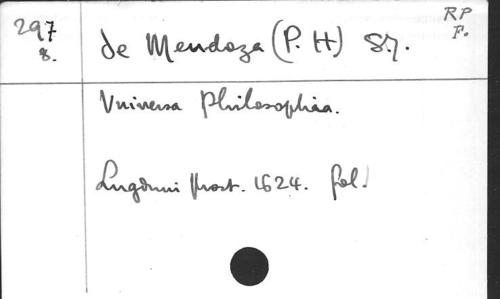 297
8.
RP
F.
de Mendoza (P. H) S.J.
Universa Philosophia.
Lugduni prost. 1624. fol.